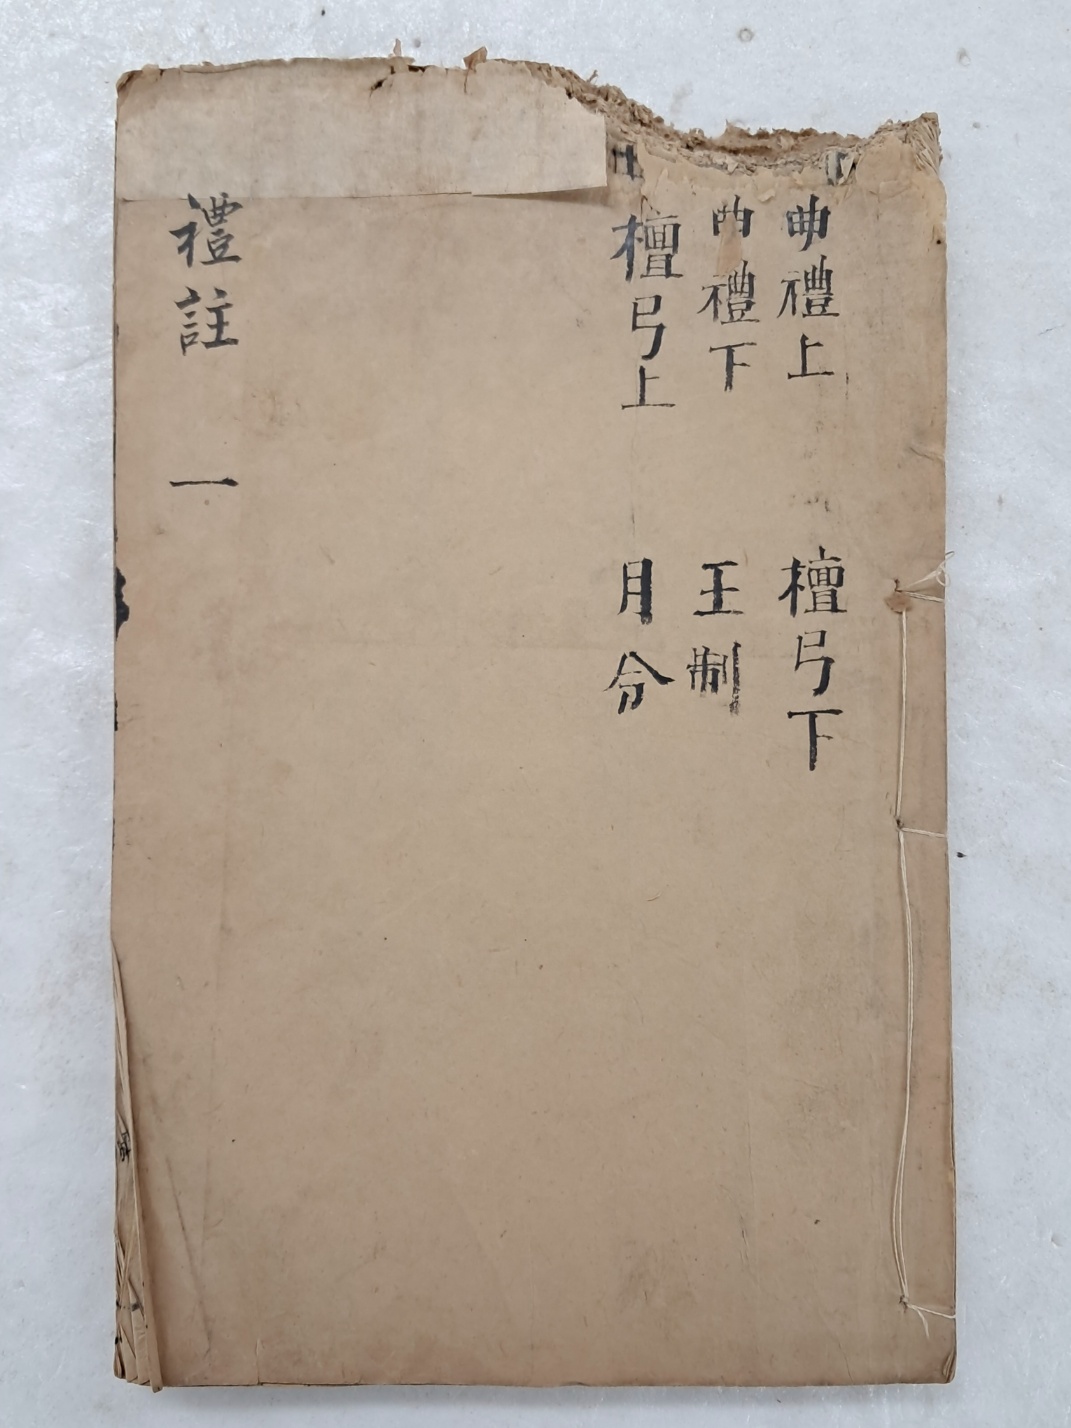 曲禮上
曲禮下
檀弓上
檀弓下
王制
月令
禮註 一